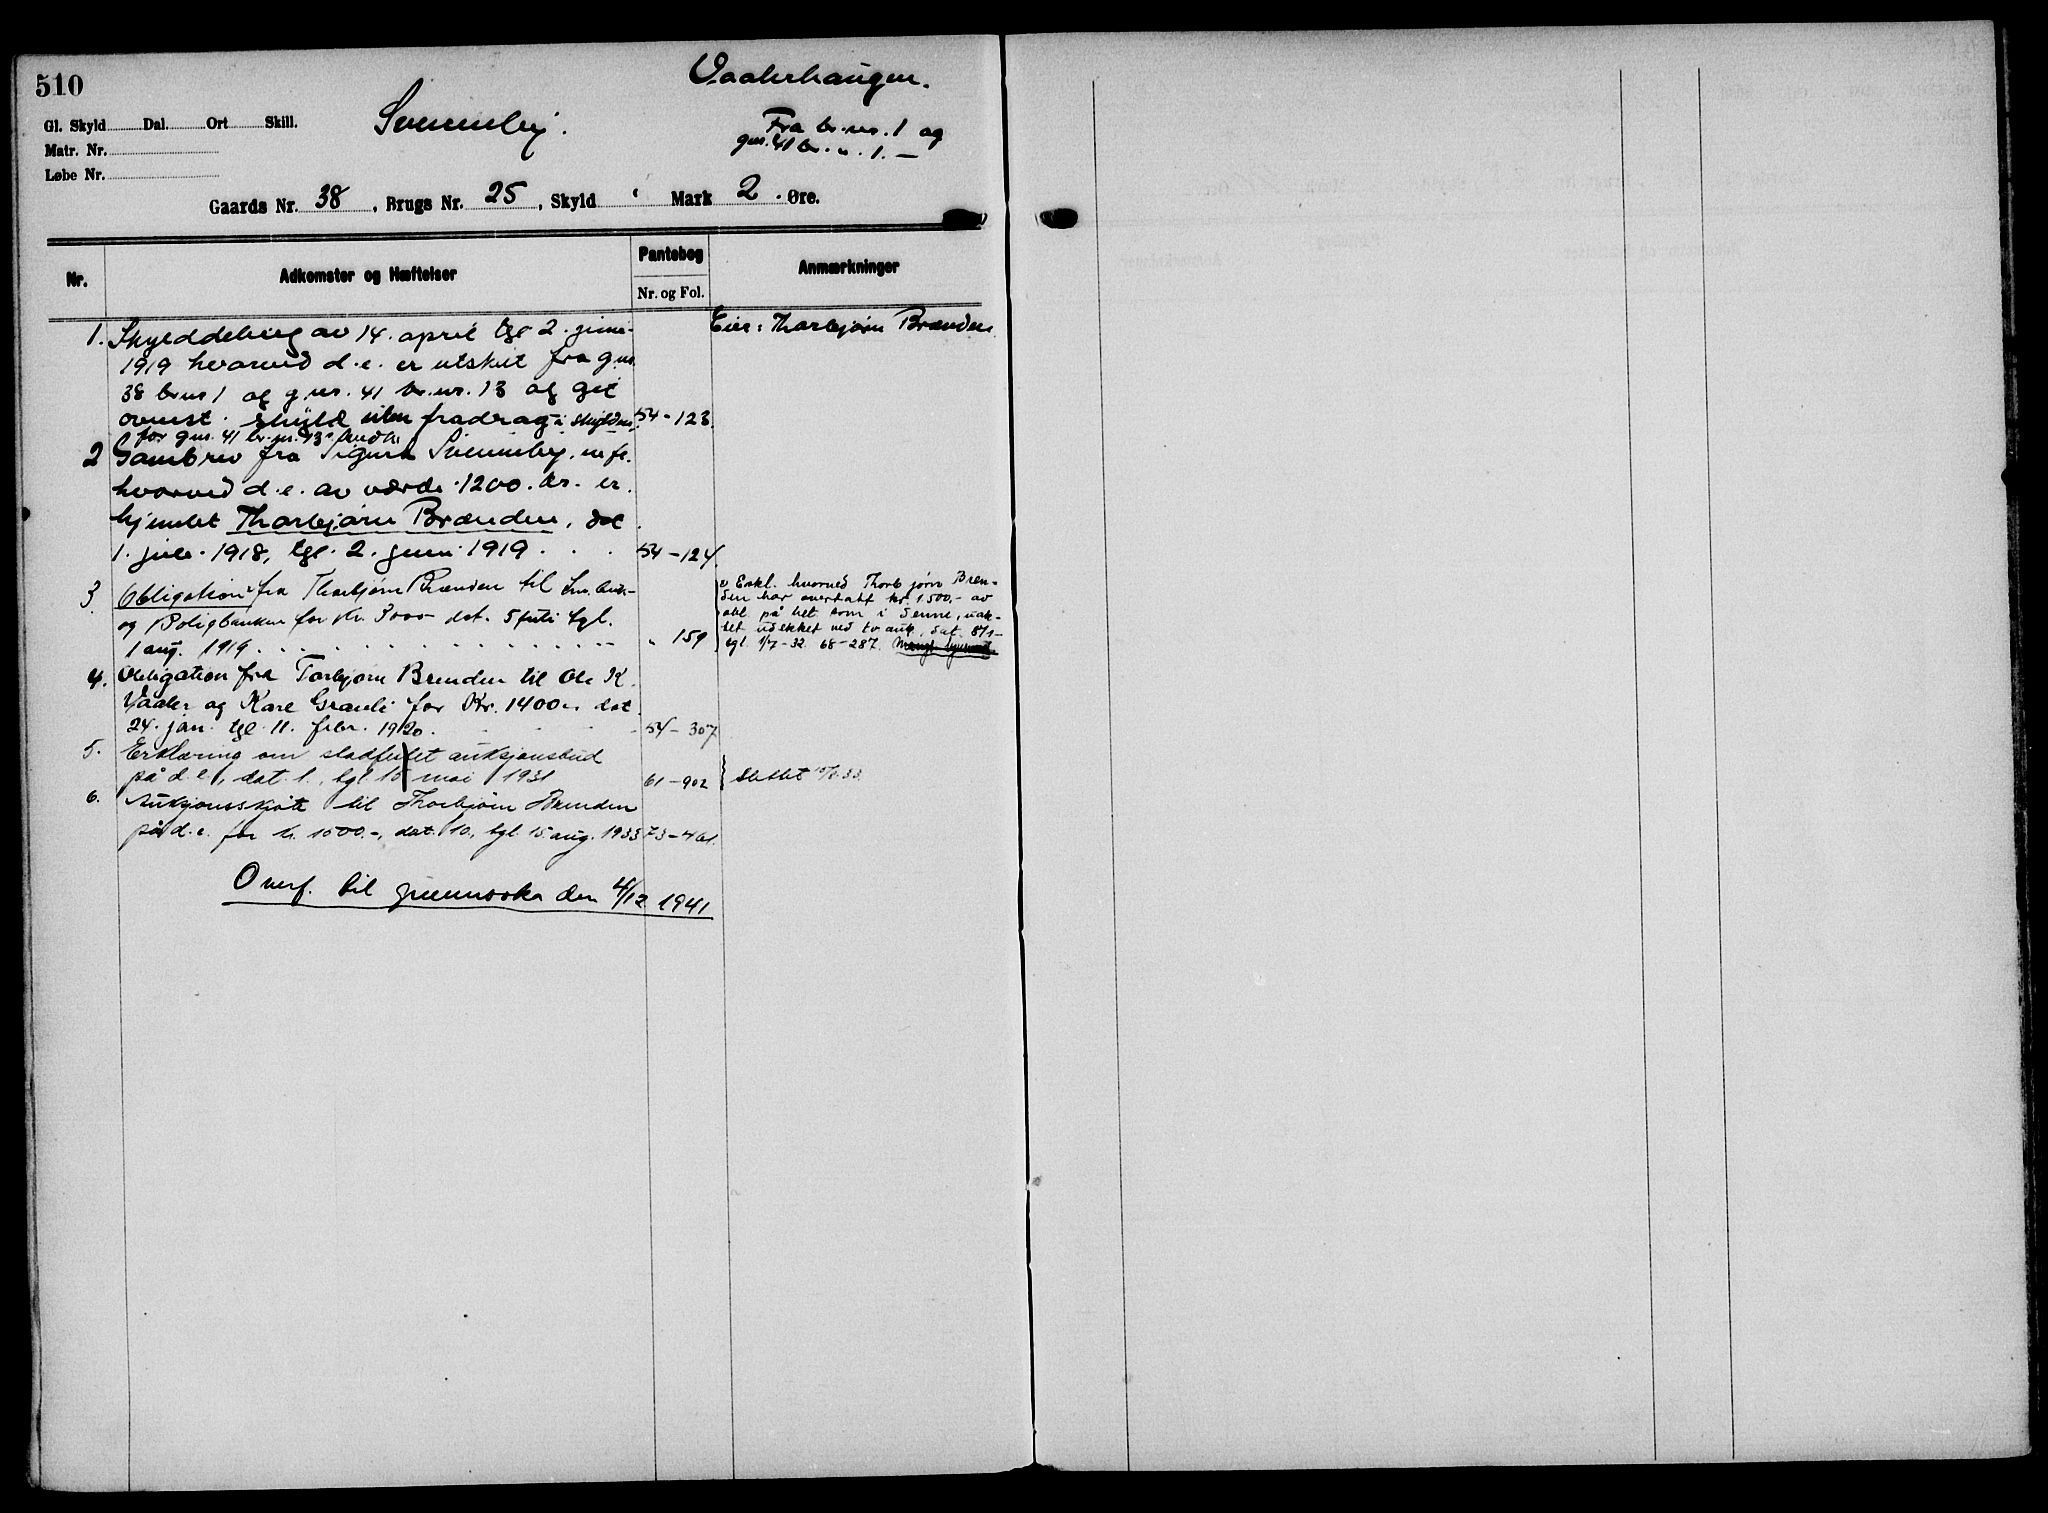 510
Vaalerhaugen.
Gl. Skyld Dal. Ort Skill.
Svenneby.
Matr. Nr.
Fra br.nr. 1 og
gnr. 41 br. " 1. —
Løbe Nr.
Gaards Nr. 38, Brugs Nr. 25, Skyld Mark 2 Øre.
Nr.
Adkomster og Hæftelser
Pantebog
Nr. og Fol.
Anmærkninger
1. Skylddeling av 14. april tgl 2. juni
1919 hvorved d.e. er utskilt fra gnr.
38 brnr 1 og gnr. 41 br.nr. 13 og git
ovenst. skyld uten fradrag i skylden 54 - 123.
for gnr. 41 br.nr. 13
Eier: Thorbjørn Brænden
2 Gavebrev fra Sigurd Svenneby
hvorved d.e. av værdi 1200. kr. er
hjemlet Thorbjørn Brænden, dat
1. juli 1918, tgl. 2. juni 1919 . . . 54 - 124
3 Obligation fra Thorbjørn Brænden til
og Boligbanken for Kr. 3000 dat. 5 juli tgl.
1 aug. 1919 " 159
v Erkl. hvorved Thorbjørn Bren-
den har overtatt kr. 1.500,- av
obl. på hel. som i denne, uak-
tet udekket ved tv.auk., dat. 8/1-
tgl. 1/7-32 68-287.
4. Obligation fra Torbjørn Brenden til Ole K.
Vaaler og Kare Granli for Kr. 1400 dat
24. jan. tgl. 11. febr. 1920. 54 - 307
5. Erklæring om stadfestet auksjonsbud
på d.e., dat. 1., tgl. 10 mai 1931 61-902
slettet
6. Auksjonsskjøte til Thorbjørn Brenden
på d.e. for kr. 1500.-, dat. 10., tgl. 15. aug. 1933 73-461.
Overf. til grunnboka den 4/12 1941